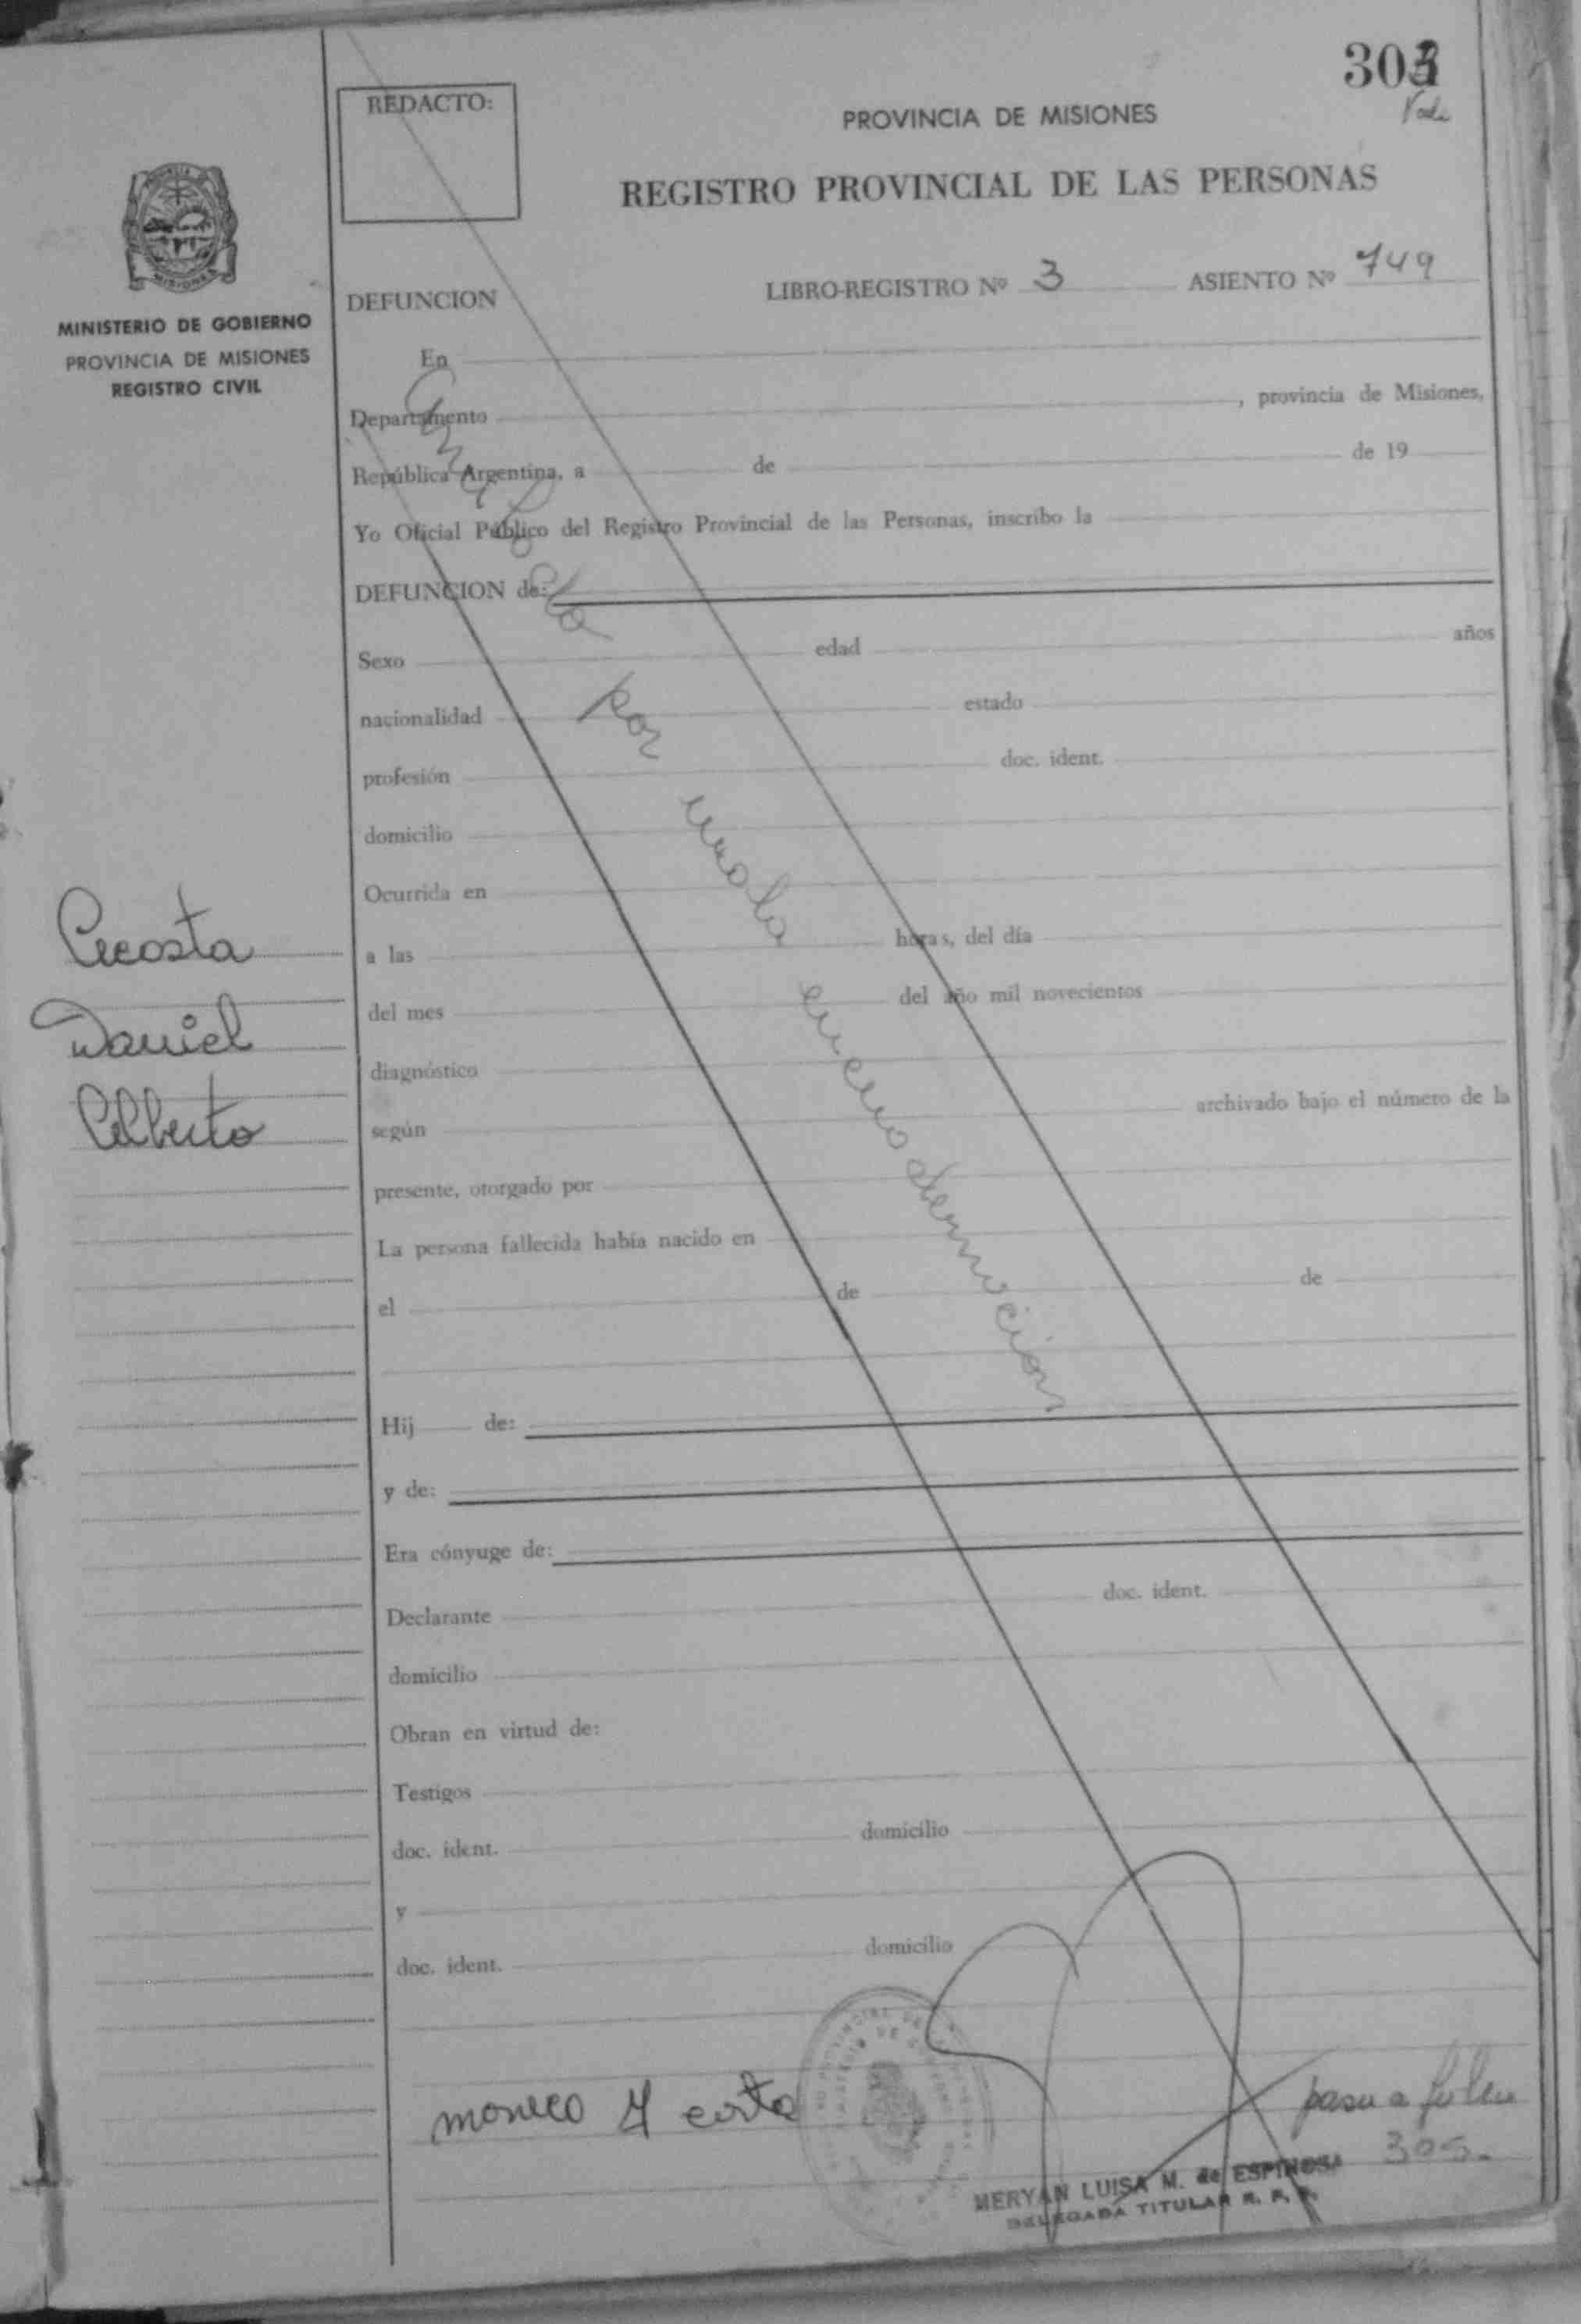 303
REDACTO:
PROVINCIA DE MISIONES
REGISTRO PROVINCIAL DE LAS PERSONAS
MINISTERIO DE GOBIERNO
PROVINCIA DE MISIONES
REGISTRO CIVIL
DEFUNCION
LIBRO-REGISTRO Nº 3 ASIENTO Nº 749
En
Departamento , provincia de Misiones,
República Argentina, a de de 19
Yo Oficial Público del Registro Provincial de las Personas, inscribo la
DEFUNCION de:
Sexo edad años
nacionalidad estado
profesión doc. ident.
domicilio
Ocurrida en
a las horas, del día
del mes del año mil novecientos
diagnóstico
según archivado bajo el número de la
presente, otorgado por
La persona fallecida había nacido en
el de de
Hij de:
y de:
Era cónyuge de:
Declarante doc. ident.
domicilio
Obran en virtud de:
Testigos
doc. ident. domicilio
y
doc. ident. domicilio
Acosta
Daniel
Alberto
Anulado por mala encuadernacion
pasa a folio
305.
MERYAN LUISA M. de ESPINOSA
DELEGADA TITULAR R. P. P.